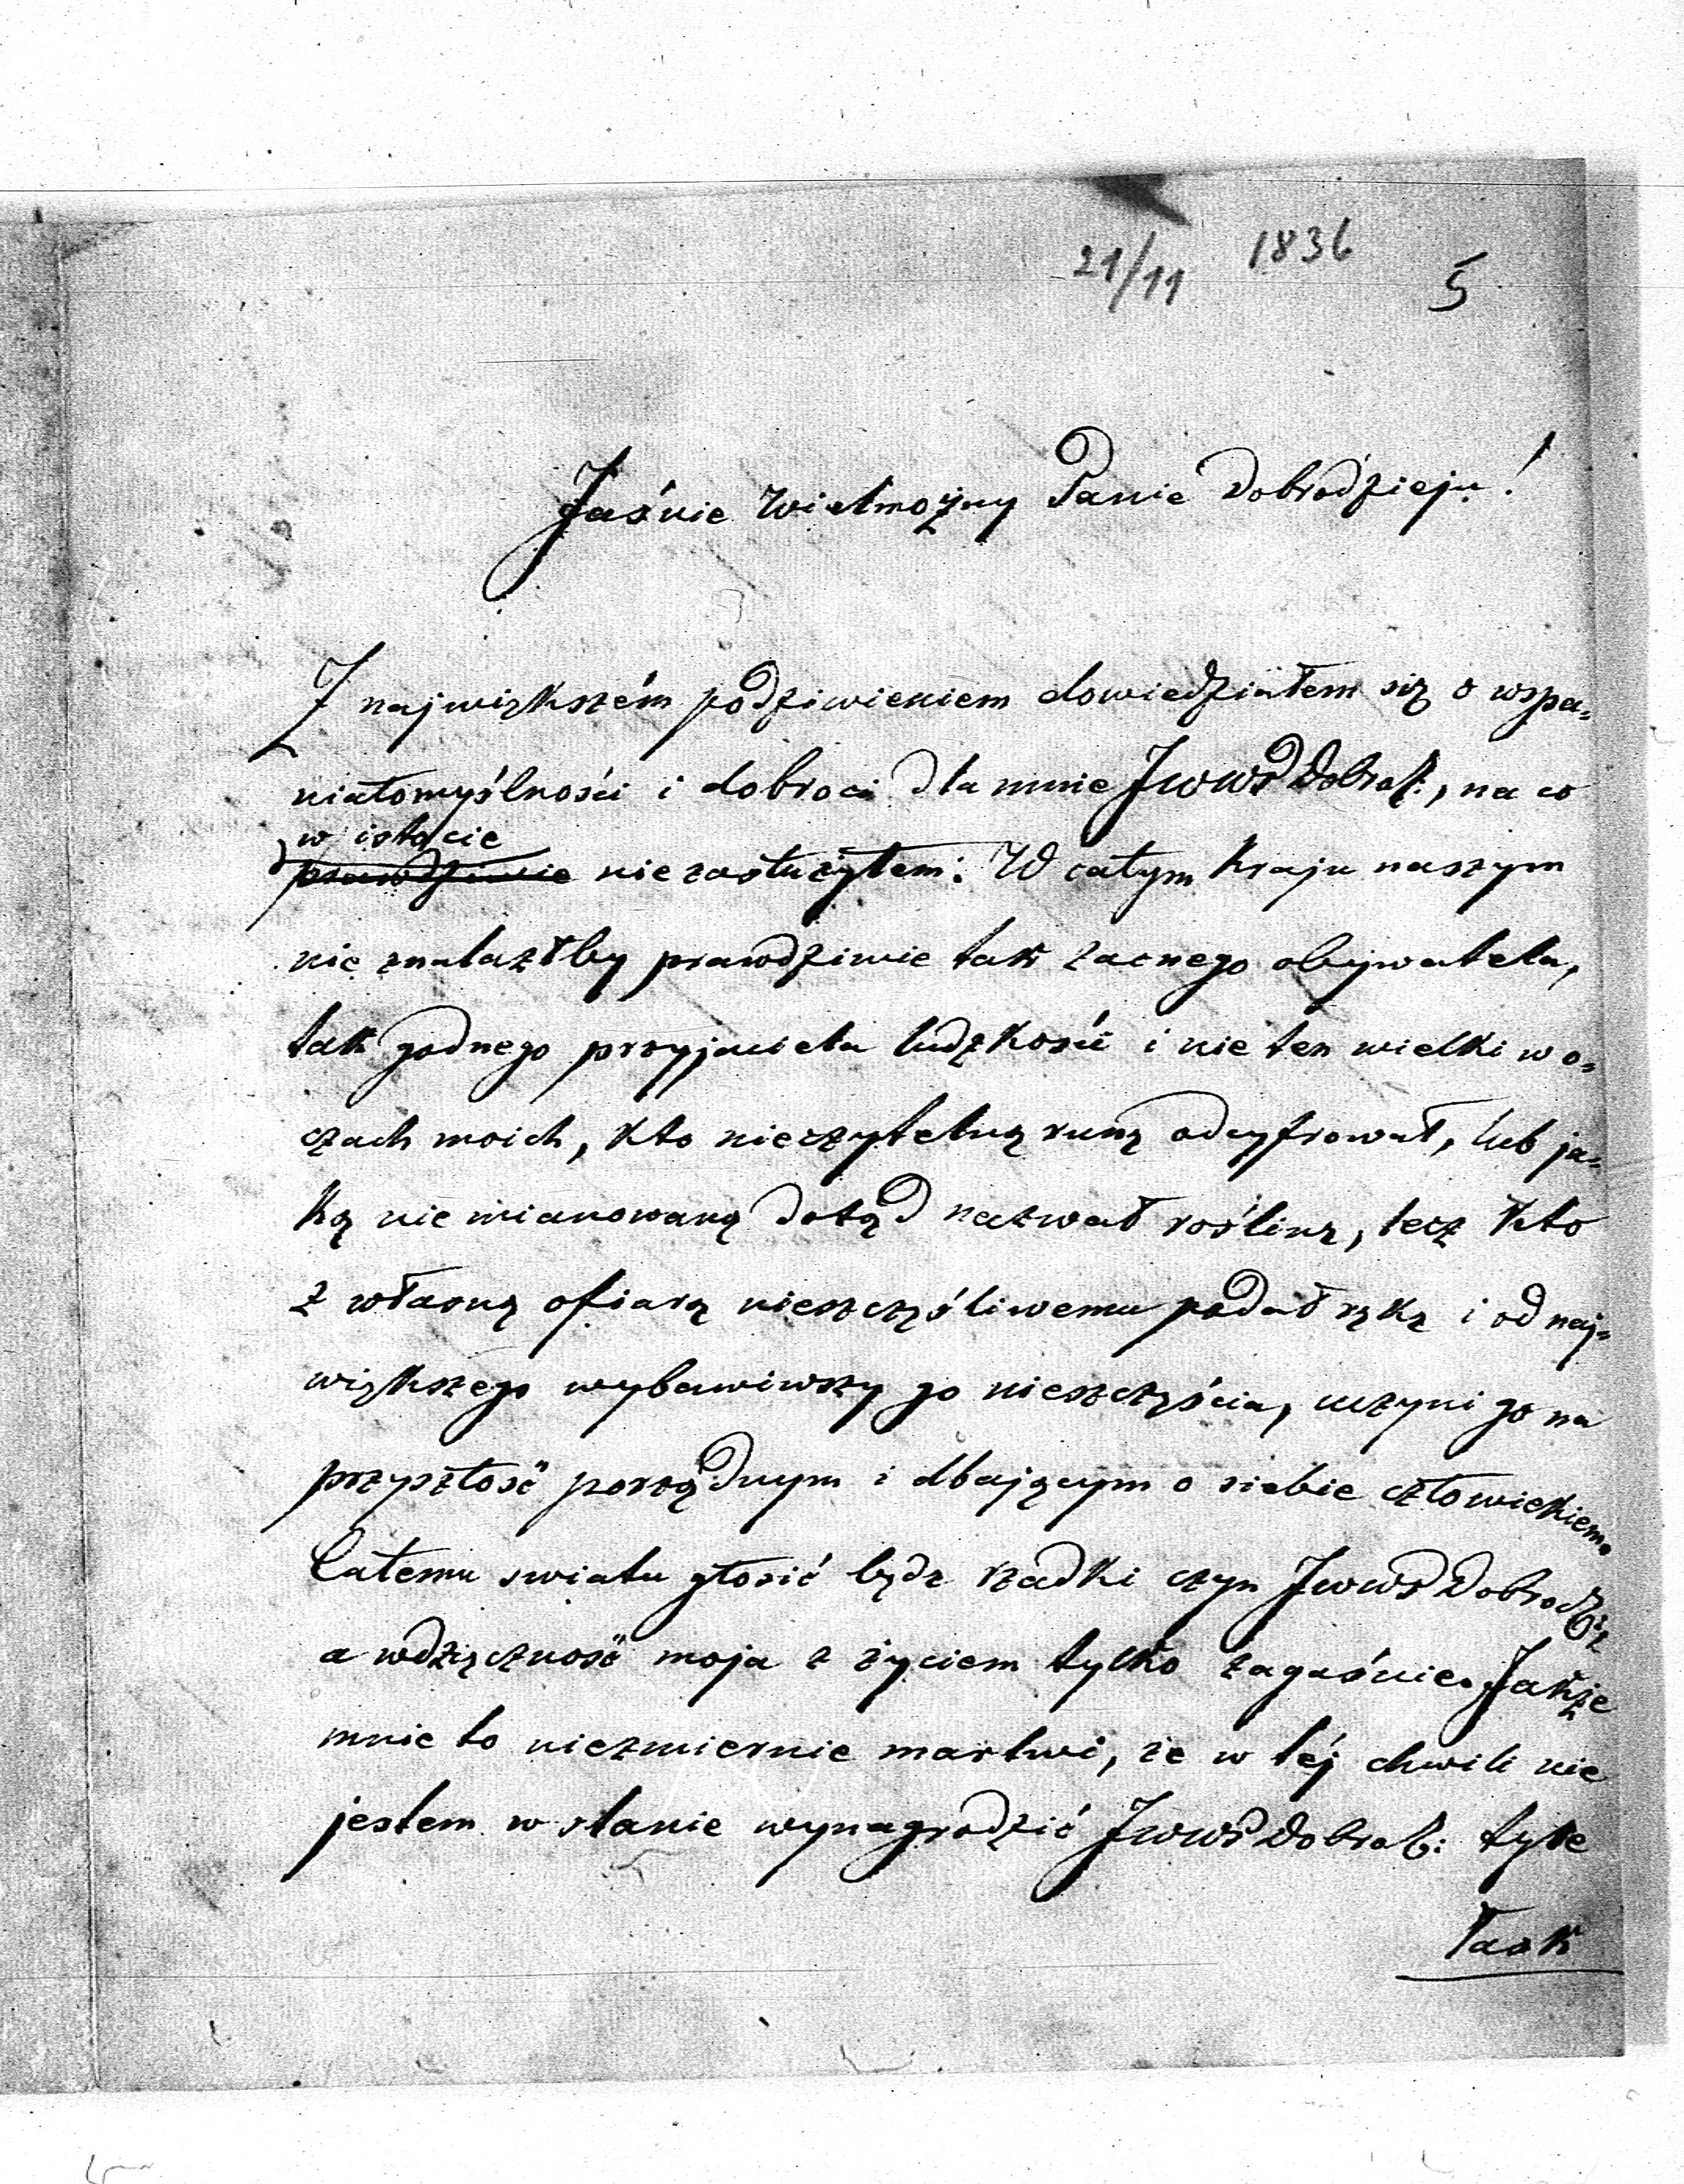 21/11 1836 5
Jaśnie Wielmożny Panie Dobrodzieju!
Z największém podziwieniem dowiedziałem się o wspa-
niałomyślności i dobroci dla mnie JWWP Dobrodz:, na co
w istocie
prawdziwie niezasłużyłem. W całym kraju naszym
nie znalazłby prawdziwie tak zacnego obywatela,
tak godnego przyjaciela ludzkości i nie ten wielki w o-
czach moich, kto nieczytelną runę odcyfrował, lub ja-
ką nie mianowaną dotąd nazwał roślinę, lecz kto
z własną ofiarą nieszczęśliwemu podał rękę i od naj-
większego wybawiwszy go nieszczęścia, uczyni go na
przyszłość porządnym i dbającym o siebie człowiekiem.
Całemu swiatu głosić będę rzadki czyn JWWP Dobrodz:
a wdzięczność moja z życiem tylko zagaśnie. Jakże
mnie to niezmiernie martwi, że w téj chwili nie
jestem w stanie wynagrodzić JWWP Dobrodz: tyle
łask